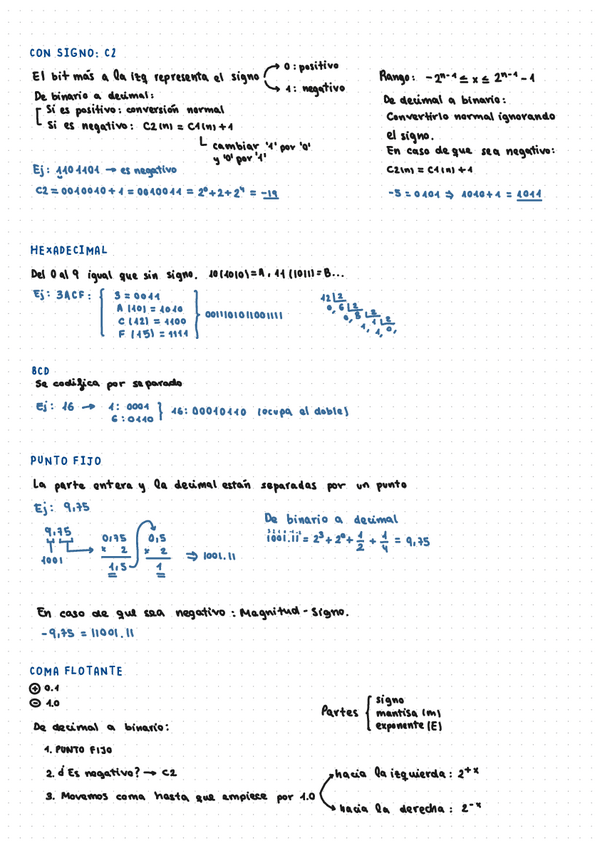 CON SIGNO: C2
El bit más a la izq representa el signo
0: positivo
1: negativo
De binario a decimal:
Si es positivo: conversión normal
Si es negativo: C2(n) = C1(n)+1
cambiar '1' por '0'
y '0' por '1'
Ej: 1101101 → es negativo
C2 = 0010010 + 1 = 0010011 = 2⁰+2+2⁴ = -19
Rango: -2ⁿ⁻¹ ≤ x ≤ 2ⁿ⁻¹ - 1
De decimal a binario:
Convertirlo normal ignorando
el signo.
En caso de que sea negativo:
C2(n) = C1(n) +1
-5 = 0101 ⇒ 1010+1 = 1011
HEXADECIMAL
Del 0 al 9 igual que sin signo. 10(1010)=A, 11(1011)=B...
Ej: 3ACF:
3 = 0011
A (10) = 1010
C (12) = 1100
F (15) = 1111
0011101011001111
12 2
0, 6 2
0, 3 2
1, 1 2
1, 0,
BCD
Se codifica por separado
Ej: 16 →
1: 0001
6: 0110
16: 00010110 (ocupa el doble)
PUNTO FIJO
La parte entera y la decimal están separadas por un punto
Ej: 9,75
9,75
1001
0,75
x 2
1,5
0,5
x 2
1
⇒ 1001.11
De binario a decimal
1001.11 = 2³+2⁰+1/2+1/4 = 9,75
En caso de que sea negativo: Magnitud-Signo.
-9,75 = 11001.11
COMA FLOTANTE
⊕ 0.1
⊖ 1.0
Partes
signo
mantisa (m)
exponente (E)
De decimal a binario:
1. PUNTO FIJO
2. ¿Es negativo? → C2
3. Movemos coma hasta que empiece por 1.0
hacia la izquierda: 2⁺ˣ
hacia la derecha: 2⁻ˣ